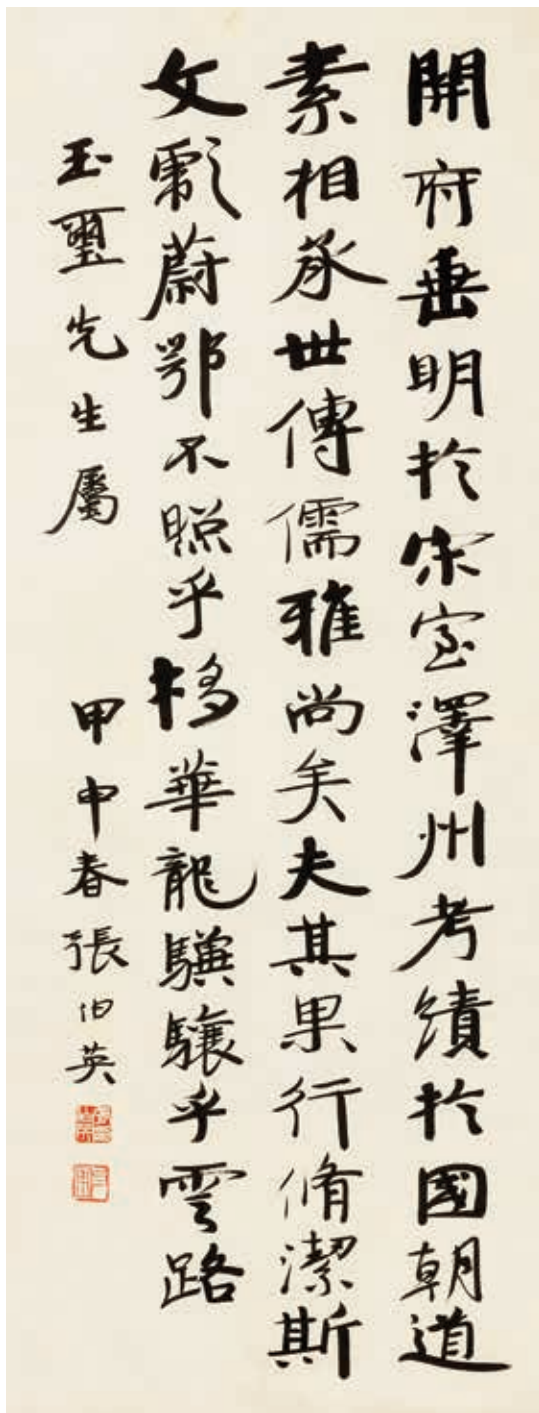 開府垂明於宋室澤州考績於國朝道
素相承世傳儒雅尚矣夫其果行脩潔斯
文彪蔚鄂不照乎移華龍驥驤乎雲路
玉璽先生屬 甲申春張伯英